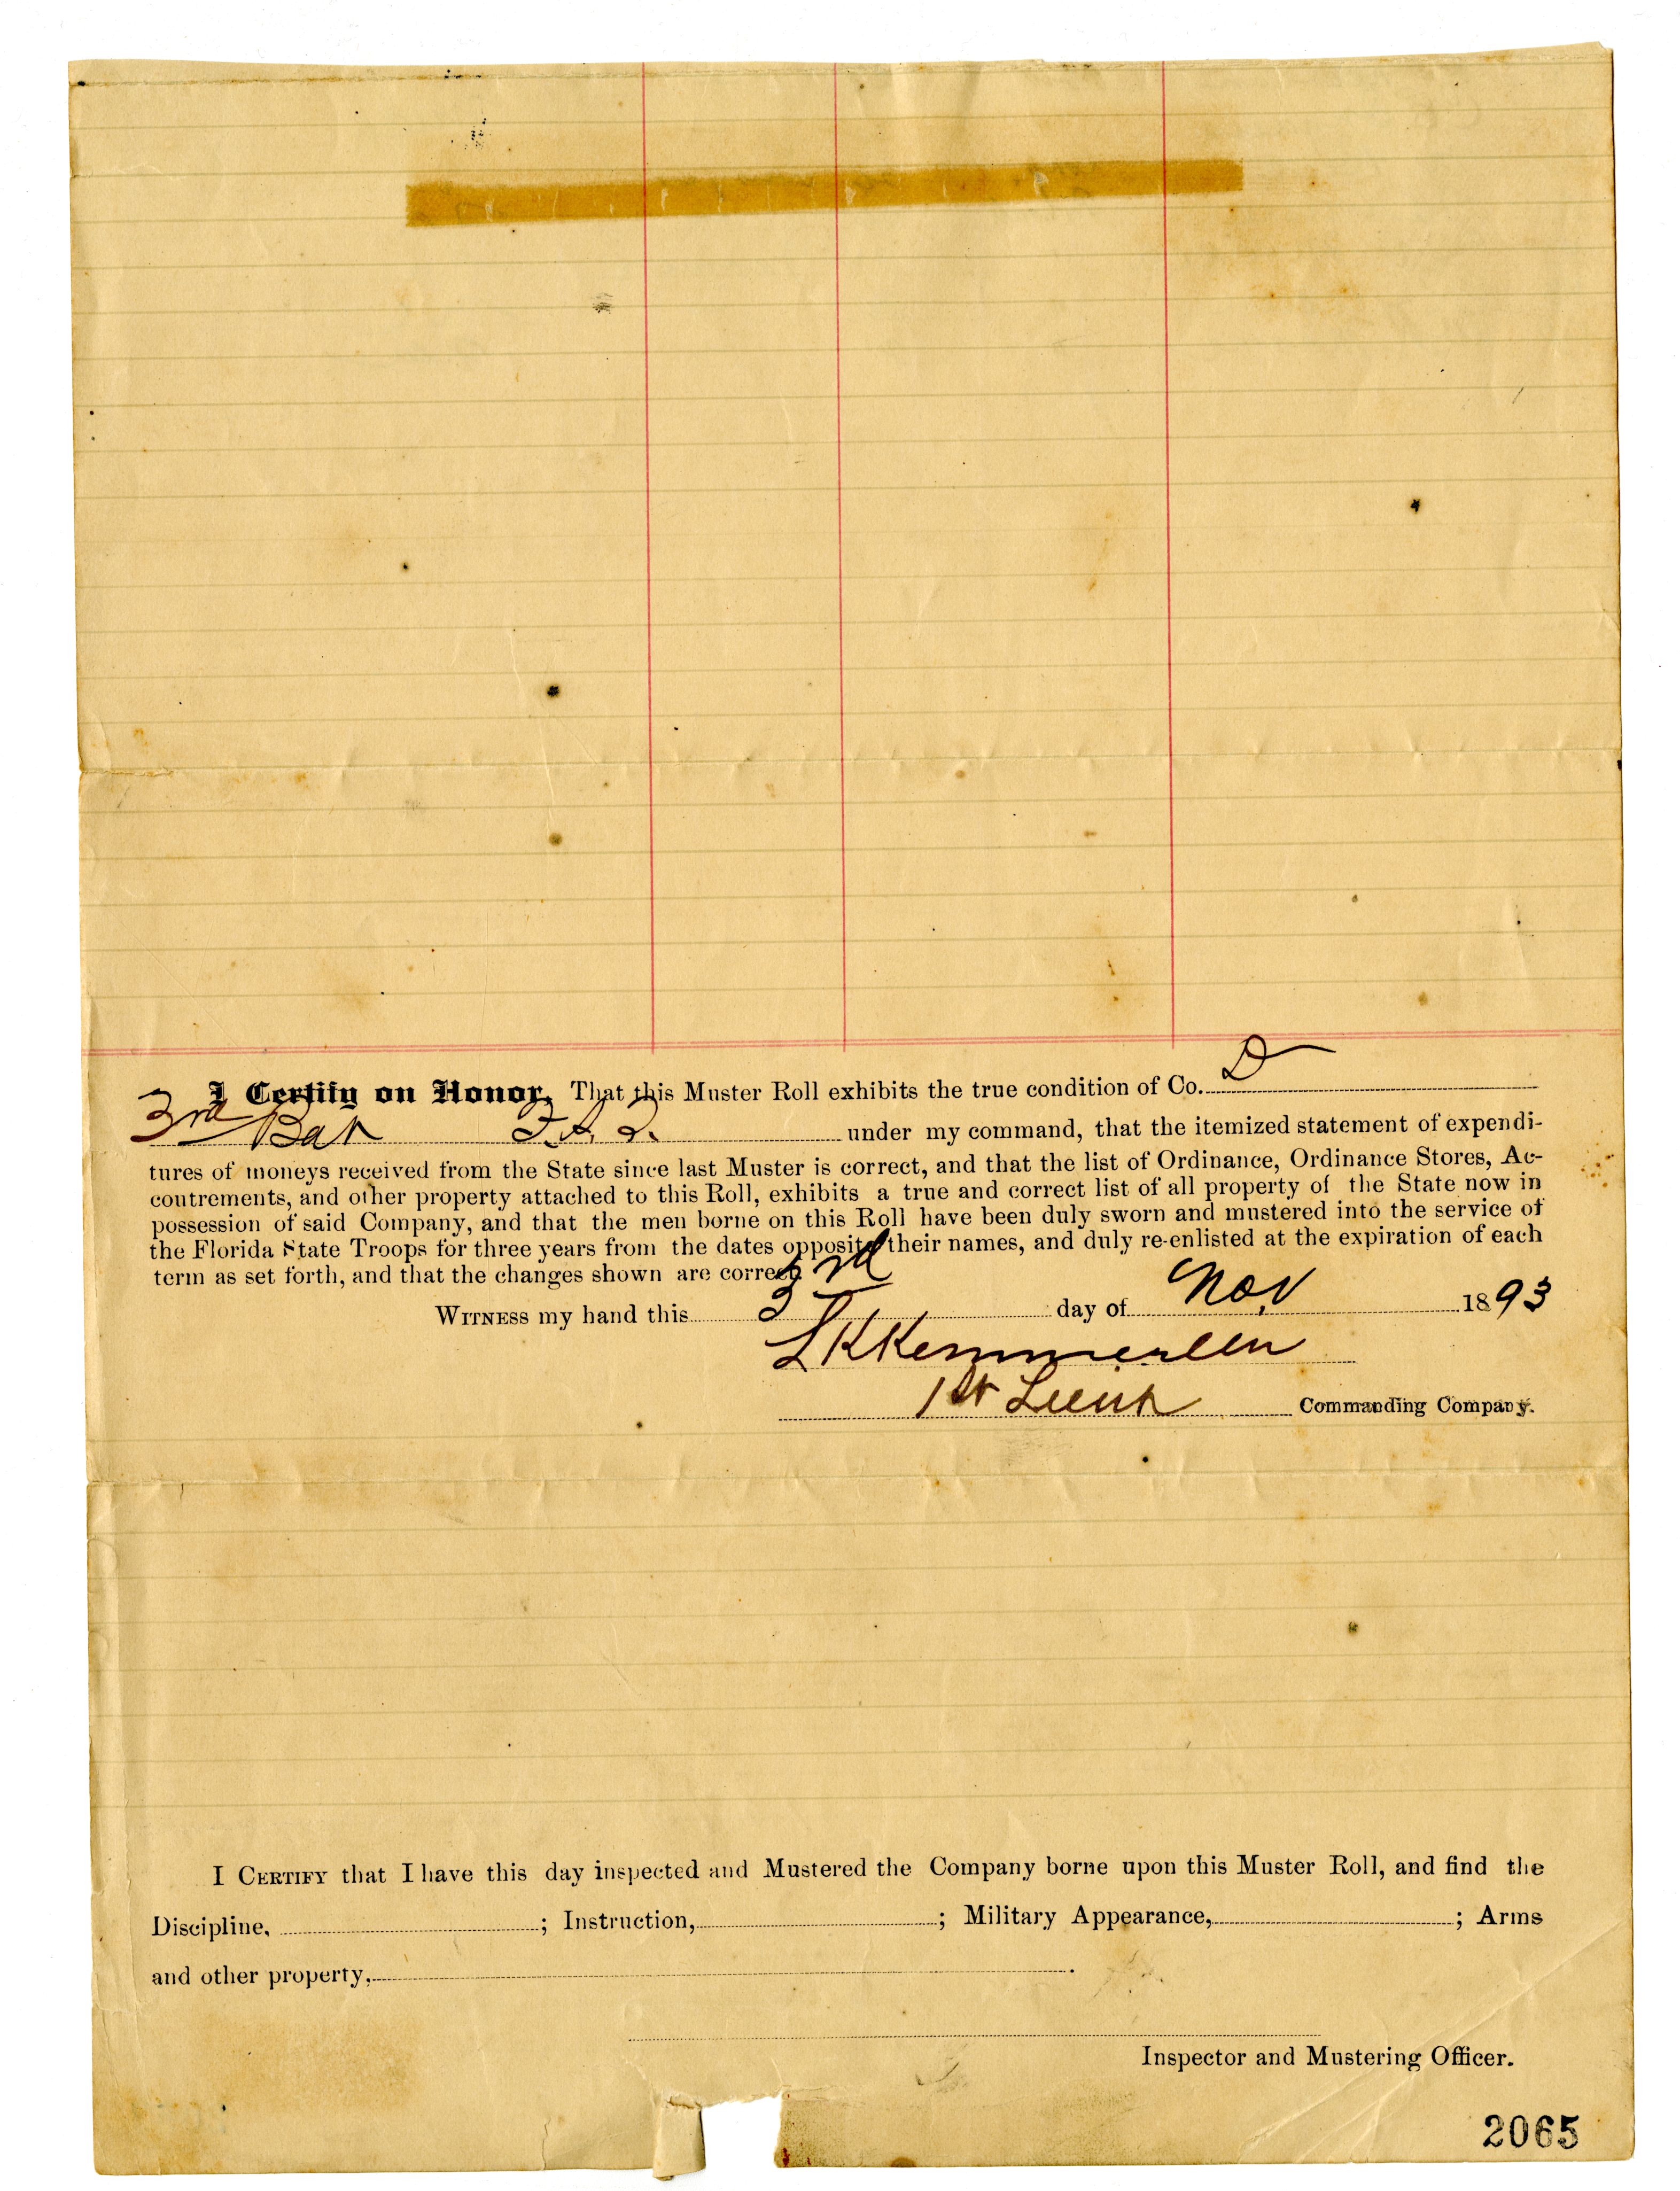 I Certify on Honor, That this Muster Roll exhibits the true condition of Co. D
3rd Bat F. S. T. under my command, that the itemized statement of expendi-
tures of moneys received from the State since last Muster is correct, and that the list of Ordinance, Ordinance Stores, Ac-
coutrements, and other property attached to this Roll, exhibits a true and correct list of all property of the State now in
possession of said Company, and that the men borne on this Roll have been duly sworn and mustered into the service of
the Florida State Troops for three years from the dates opposite their names, and duly re-enlisted at the expiration of each
term as set forth, and that the changes shown are correct.
WITNESS my hand this 3rd day of Nov 1893
1st Lieut Commanding Company.
I CERTIFY that I have this day inspected and Mustered the Company borne upon this Muster Roll, and find the
Discipline, ; Instruction, ; Military Appearance, ; Arms
and other property, .
Inspector and Mustering Officer.
2065